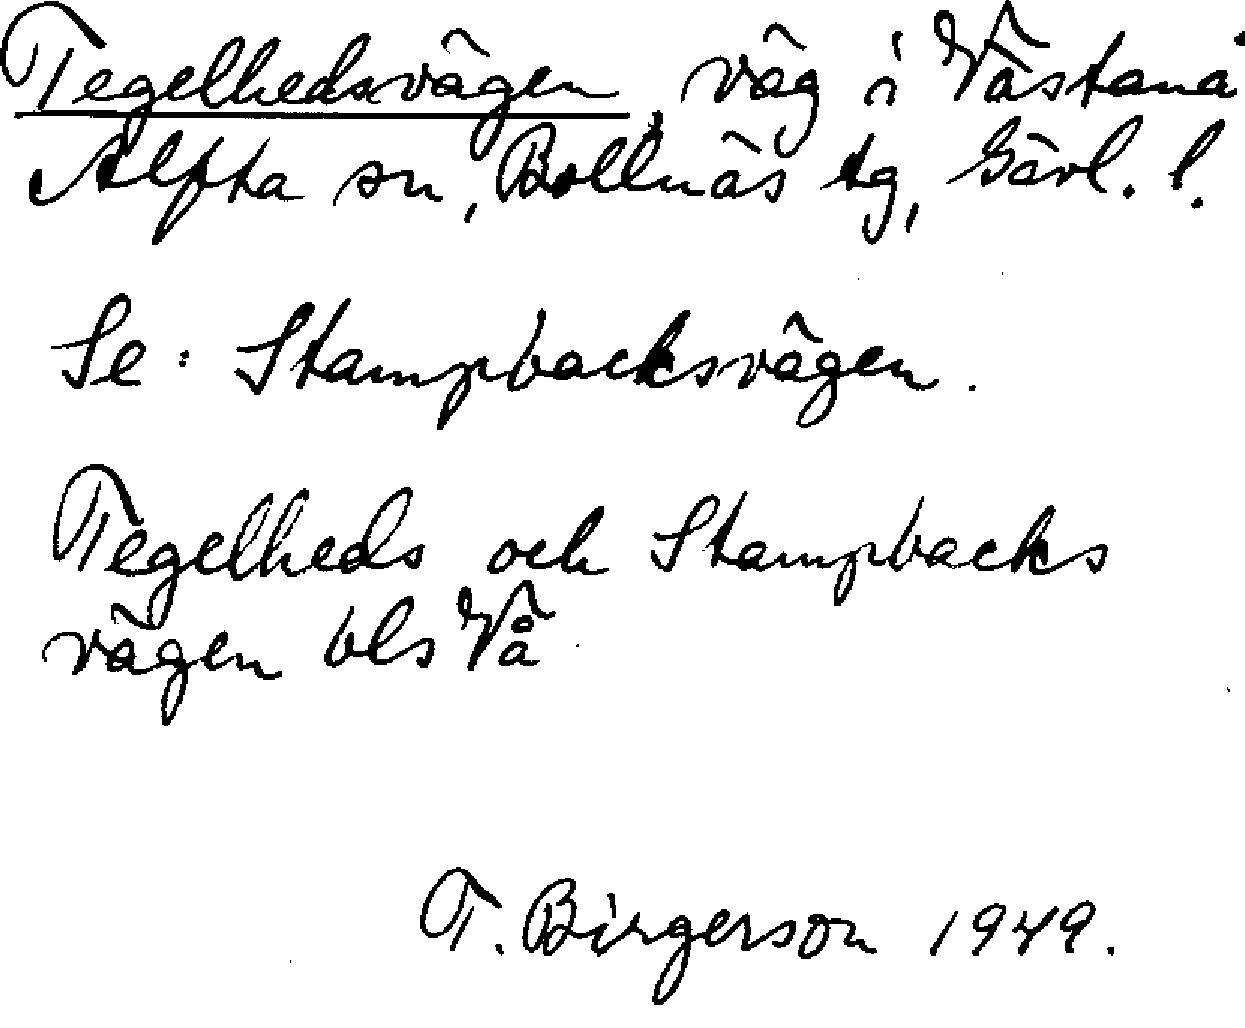 Tegelhedsvägen, väg i Västanå
Alfta sn, Bollnäs tg, Gävl. l.
Se: Stampbacksvägen.
Tegelheds och Stampbacks
vägen bls Vå
T. Birgerson 1949.